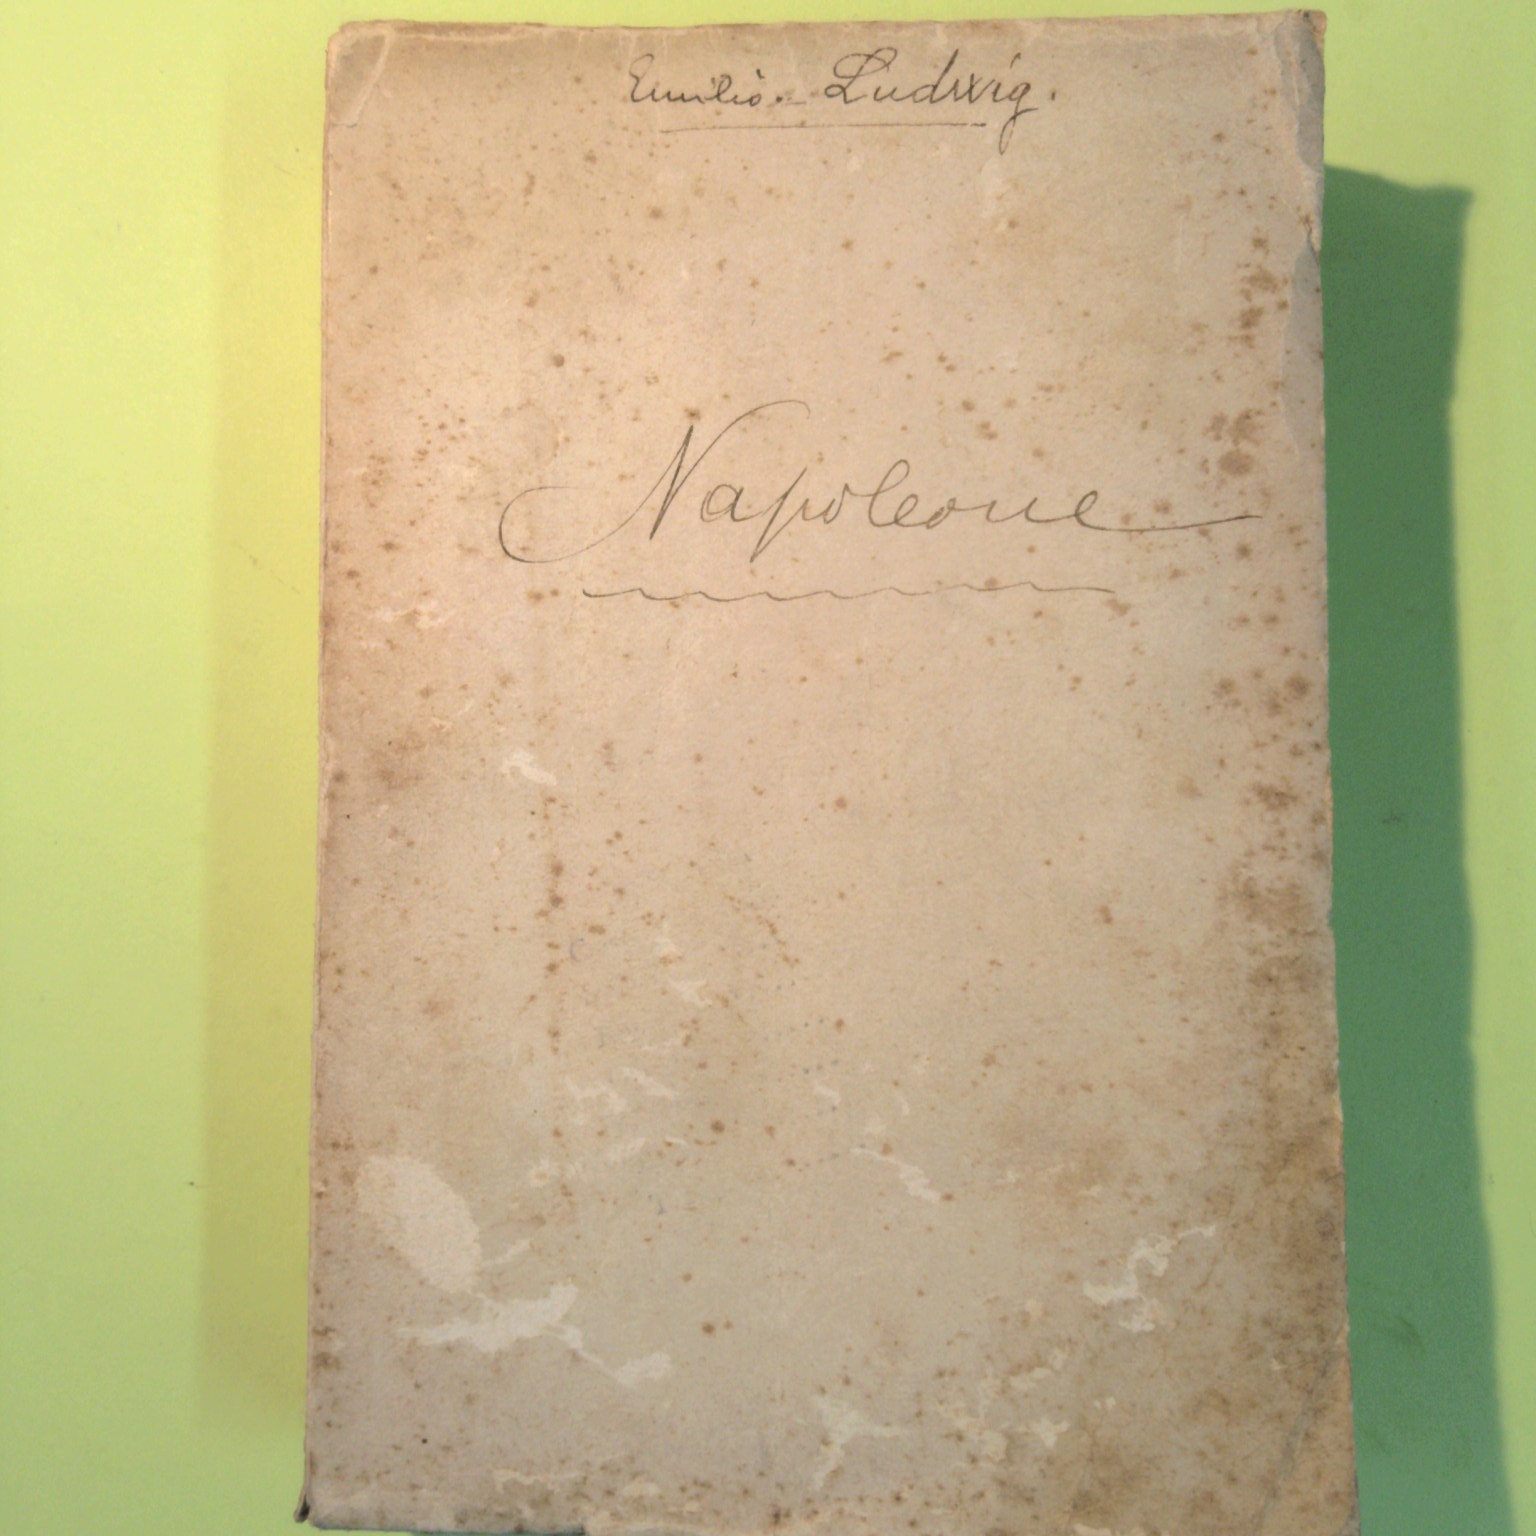 Emilio. Ludwig.
Napoleone